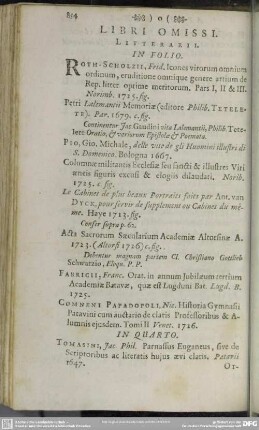 854 )o(
LIBRI OMISSI.
LITTERARII.
IN FOLIO.
ROTH-SCHOLZII, Frid. Icones virorum omnium
ordinum, eruditione omnique genere artium de
Rep. litter. optime meritorum. Pars I, II & III.
Norimb. 1725. fig.
Petri Lalemantii Memoria (editore Philib. TETELE-
TE). Par. 1679. c. fig.
Continentur Jac. Gaudini vita Lalemantii, Philib. Tete-
lete Oratio, & variorum Epistolæ & Poemata.
PIO, Gio. Michale, delle vite de gli Huomini illustri di
S. Domenico. Bologna 1607.
Columnæ militantis Ecclesiæ seu sancti & illustres Viri
æneis figuris excusi & elogiis dilaudati, Norib.
1725. c. fig.
Le Cabinet de plus beaux Portraits faits par ANT. van
DYCK, pour servir de supplement au Cabinet du mê-
me. Haye 1713. fig.
Confer supra p. 62.
Acta Sacrorum Sæcularium Academiæ Altorfinæ A.
1723. (Altorf. 1726) c. fig.
Debentur magnam partem Cl. Christiano Gottlieb
Schwartzio, Eloqu. P. P.
FABRICII, Franc. Orat. in annum Jubilæum tertium
Academiæ Batavæ, quæ est Lugduni Bat. Lugd. B.
1725.
COMMENI PAPADOPOLI, Nic. Historia Gymnasii
Patavini cum auctario de claris Professoribus & A-
lumnis ejusdem. Tomi II Venet. 1726.
IN QUARTO.
TOMASINI, Jac. Phil. Parnassus Euganeus, sive de
Scriptoribus ac literatis hujus ævi claris. Patavii
1647.
Or-